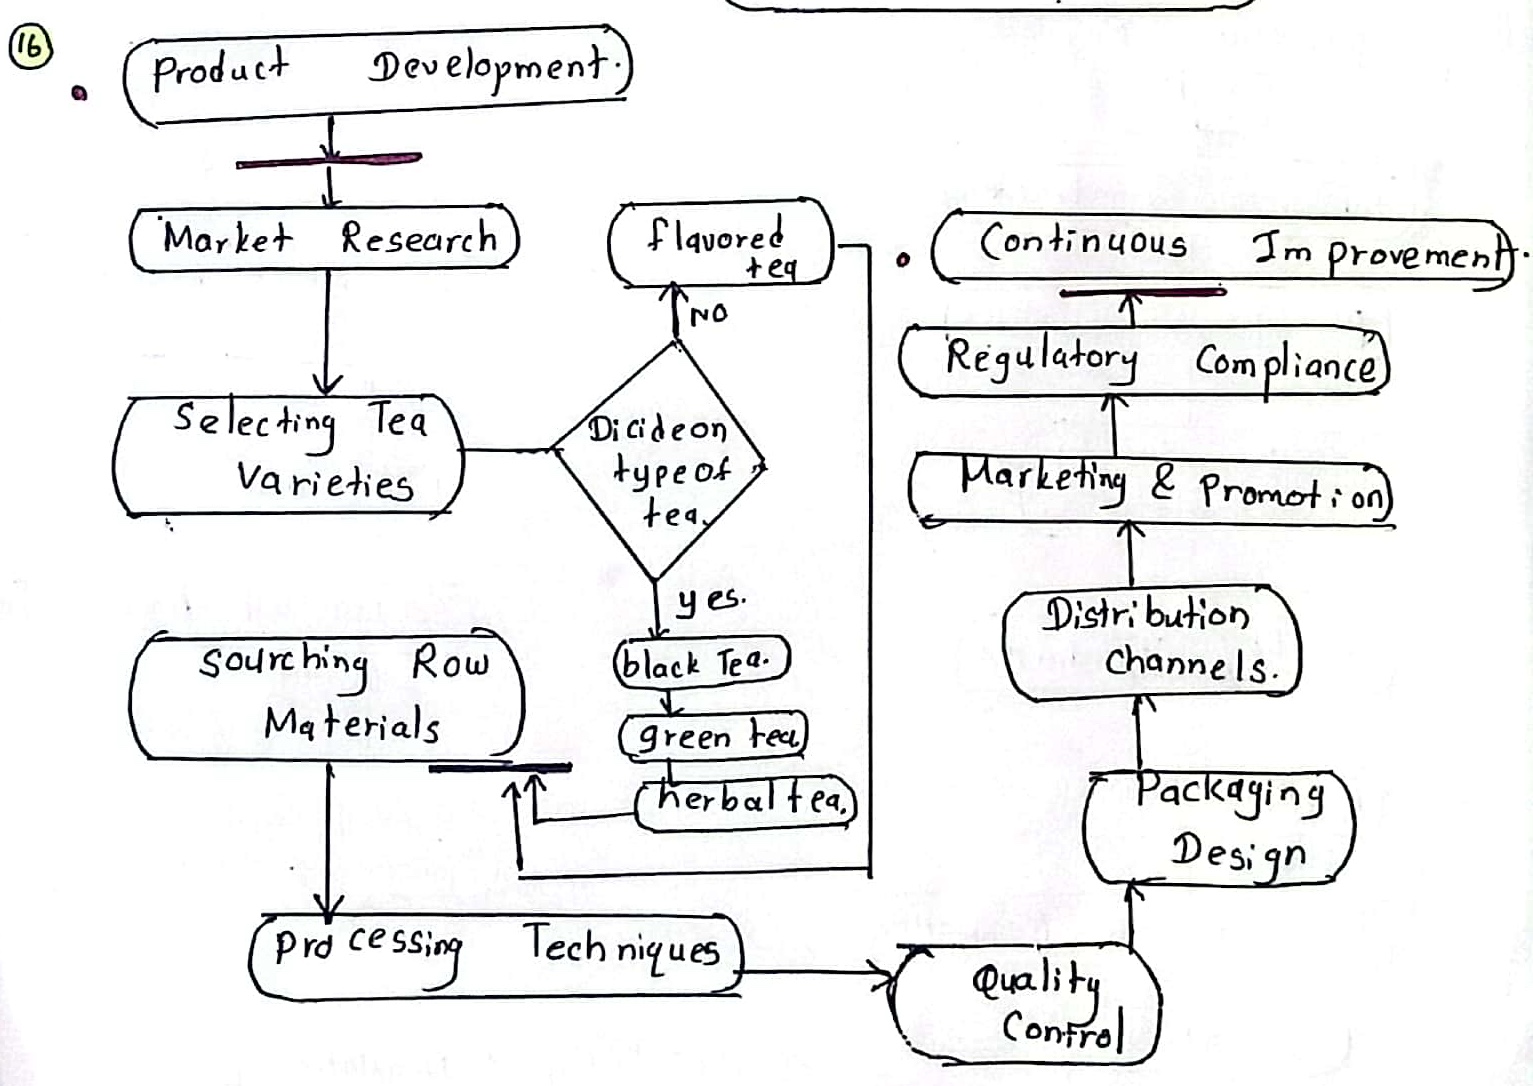 16
Product Development.
Market Research
Selecting Tea
Varieties
Dicide on
type of
tea.
NO
flavored
tea
yes.
black Tea.
green tea.
herbal tea.
Sourching Row
Materials
Processing Techniques
Quality
Control
Packaging
Design
Distribution
Channels.
Marketing & Promotion
Regulatory Compliance
Continuous Improvement.